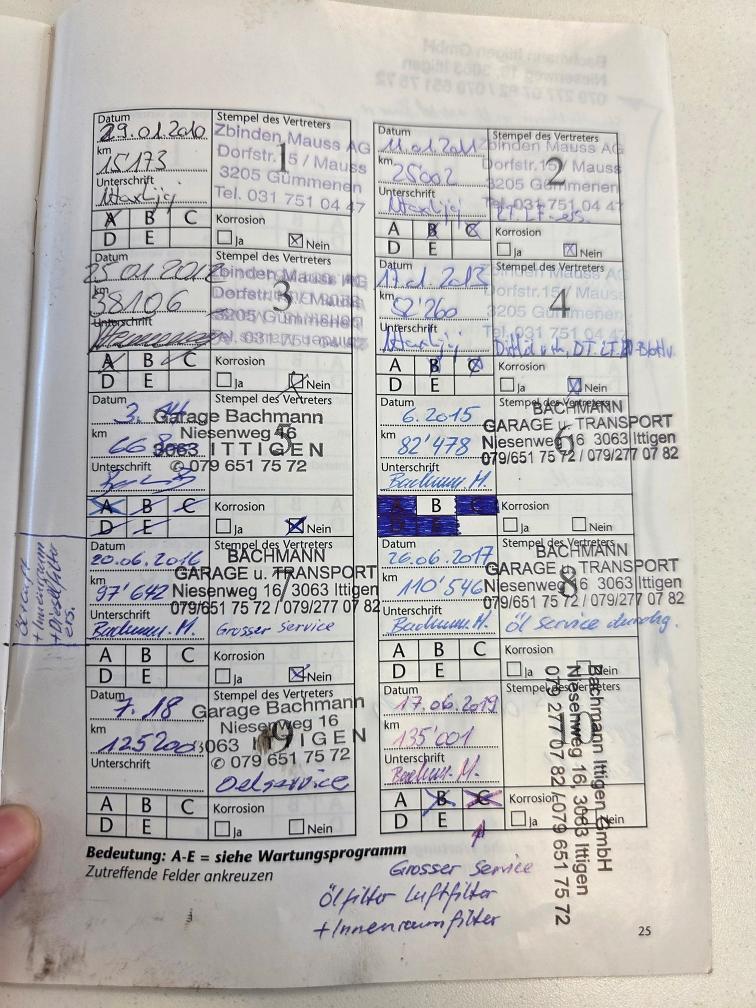 Datum
29.01.2010
km
15173
Unterschrift
Stempel des Vertreters
Zbinden Mauss AG
Dorfstr. 15 / Mauss
3205 Gümmenen
Tel. 031 751 04 47
1
A B C
D E
Korrosion
Ja Nein
Datum
11.01.2011
km
25002
Unterschrift
Stempel des Vertreters
Zbinden Mauss AG
Dorfstr. 15 / Mauss
3205 Gümmenen
Tel. 031 751 04 47
2
A B C
D E
Korrosion
Ja Nein
Datum
25.01.2012
km
38106
Unterschrift
Stempel des Vertreters
Zbinden Mauss AG
3205 Gümmenen
3
A B C
D E
Korrosion
Ja Nein
Datum
km
52'260
Unterschrift
Stempel des Vertreters
Zbinden Mauss AG
Dorfstr. 15 / Mauss
3205 Gümmenen
Tel. 031 751 04 47
4
A B C
D E
Korrosion
Ja Nein
Datum
km
Unterschrift
Stempel des Vertreters
Garage Bachmann
Niesenweg 16
3063 ITTIGEN
✆ 079 651 75 72
5
A B C
D E
Korrosion
Ja Nein
Datum
6.2015
km
82'478
Unterschrift
Bachmann. M.
Stempel des Vertreters
BACHMANN
GARAGE u. TRANSPORT
Niesenweg 16 3063 Ittigen
079/651 75 72 / 079/277 07 82
6
A B C
D E
Korrosion
Ja Nein
+ Innenraum
+ Dieselfilter
ers.
Datum
20.06.2016
km
97'642
Unterschrift
Bachmann. M.
Stempel des Vertreters
BACHMANN
GARAGE u. TRANSPORT
Niesenweg 16 / 3063 Ittigen
079/651 75 72 / 079/277 07 82
7
Grosser Service
A B C
D E
Korrosion
Ja Nein
Datum
26.06.2017
km
110'546
Unterschrift
Bachmann. M.
Stempel des Vertreters
BACHMANN
GARAGE u. TRANSPORT
Niesenweg 16 / 3063 Ittigen
079/651 75 72 / 079/277 07 82
8
Öl Service durchg.
A B C
D E
Korrosion
Ja Nein
Datum
7.18
km
125200
Unterschrift
Stempel des Vertreters
Garage Bachmann
Niesenweg 16
3063 ITTIGEN
✆ 079 651 75 72
9
Oelservice
A B C
D E
Korrosion
Ja Nein
Datum
17.06.2019
km
135'001
Unterschrift
Bachmann. M.
Stempel des Vertreters
Bachmann Ittigen GmbH
Niesenweg 16, 3063 Ittigen
079 277 07 82 / 079 651 75 72
A B C
D E
Korrosion
Ja Nein
Bedeutung: A-E = siehe Wartungsprogramm
Zutreffende Felder ankreuzen
Grosser Service
Ölfilter Luftfilter
+Innenraumfilter
25